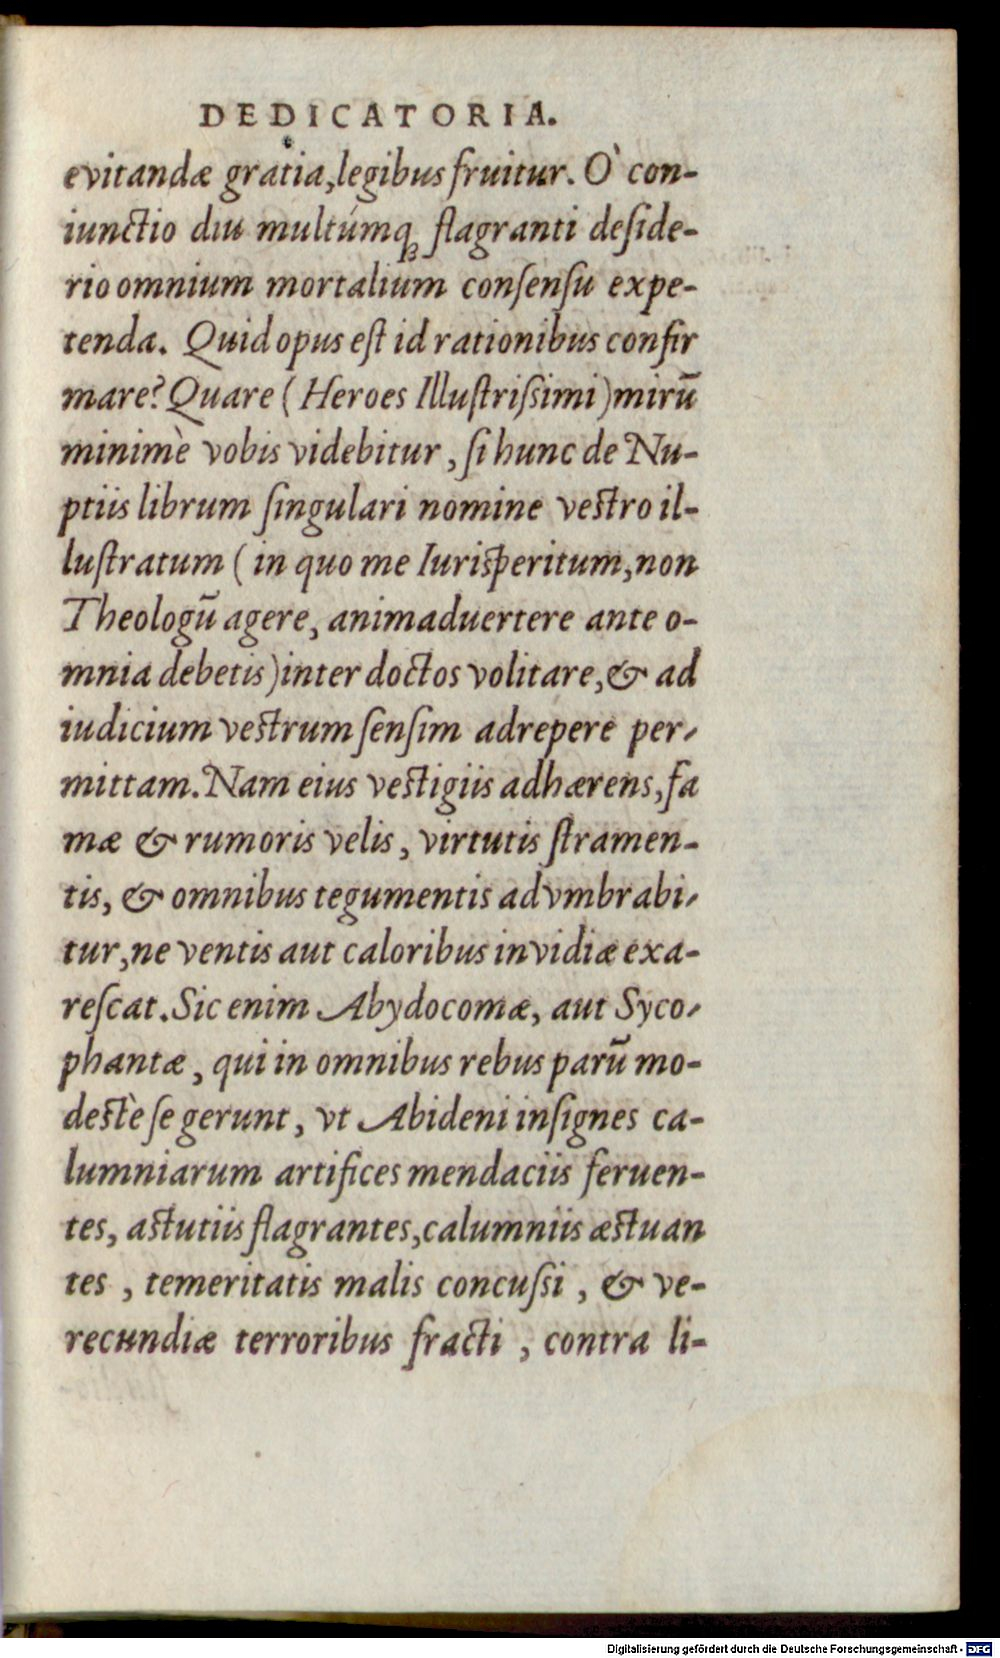 DEDICATORIA.
evitandæ gratia, legibus fruitur. Ò con-
iunctio diu multúmq; flagranti deſide-
rio omnium mortalium conſenſu expe-
tenda. Quid opus eſt id rationibus confir
mare? Quare (Heroes Illuſtriſsimi) mirū
minimè vobis videbitur, ſi hunc de Nu-
ptiis librum ſingulari nomine veſtro il-
luſtratum (in quo me Iuriſperitum, non
Theologū agere, animaduertere ante o-
mnia debetis) inter doctos volitare, & ad
iudicium veſtrum ſenſim adrepere per-
mittam. Nam eius veſtigiis adhærens, fa
mæ & rumoris velis, virtutis ſtramen-
tis, & omnibus tegumentis advmbrabi-
tur, ne ventis aut caloribus invidiæ exa-
reſcat. Sic enim Abydocomæ, aut Syco-
phantæ, qui in omnibus rebus parū mo-
deſtè ſe gerunt, vt Abideni inſignes ca-
lumniarum artifices mendaciis feruen-
tes, aſtutiis flagrantes, calumniis æſtuan
tes, temeritatis malis concuſsi, & ve-
recundiæ terroribus fracti, contra li-
Digitalisierung gefördert durch die Deutsche Forschungsgemeinschaft - DFG